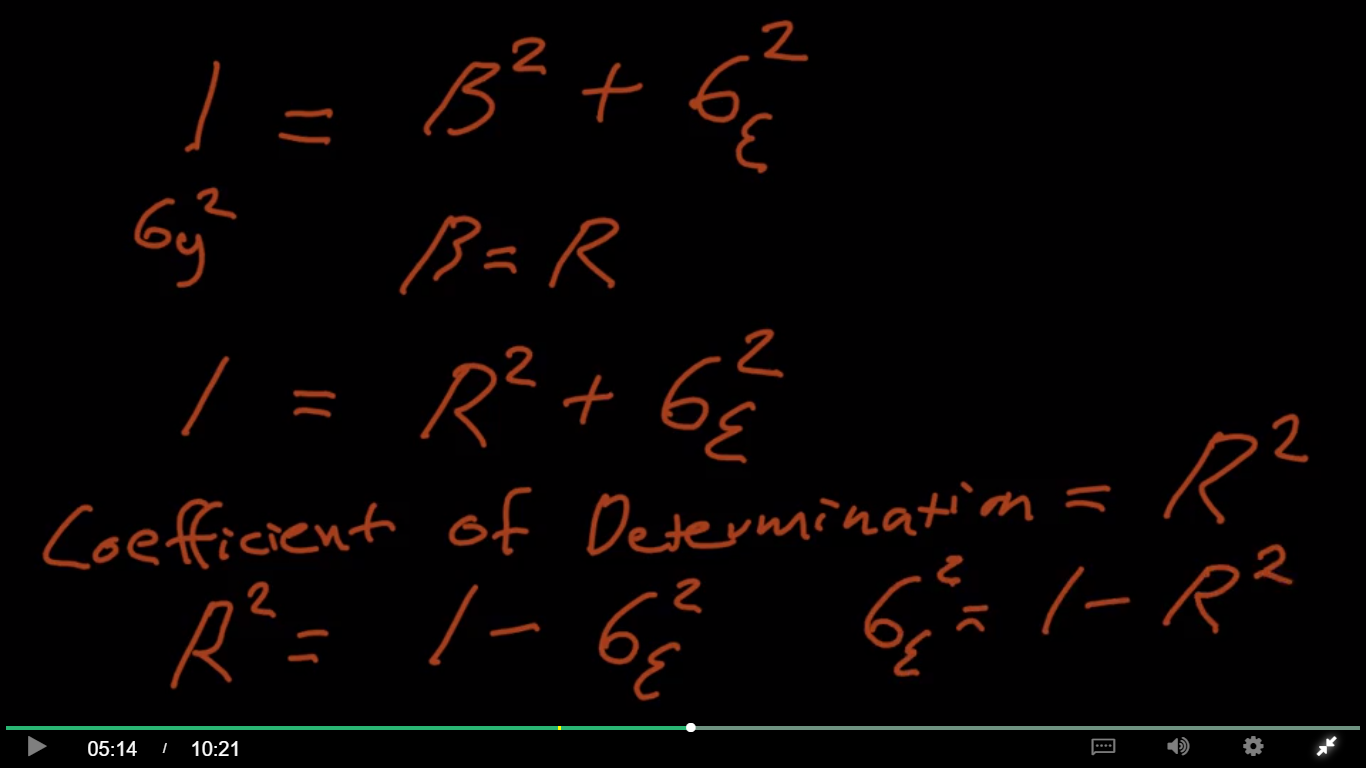 1 = β² + σ_ε²
σ_y² β = R
1 = R² + σ_ε²
Coefficient of Determination = R²
R² = 1 - σ_ε² σ_ε² = 1 - R²
05:14 / 10:21